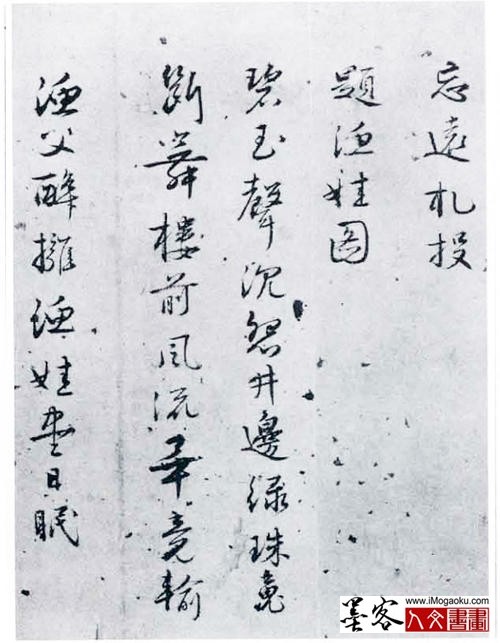 忘遠札投
題漁娃图
碧玉聲沉怨井邊綠珠魂
斷舞樓前風流畢竟輸
漁父醉擁漁娃盡日眠
www.iMogaoku.com
墨客人文書畫